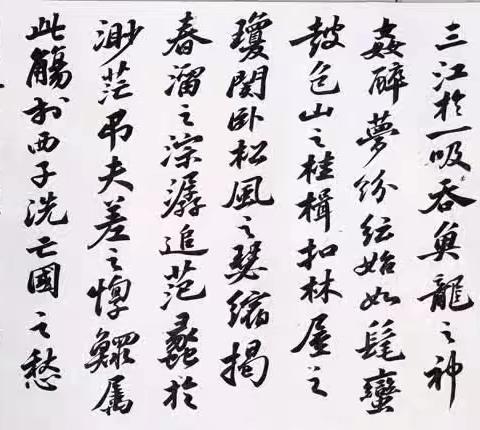 三江於一吸吞魚龍之神
姦醉夢紛紜始如髦蠻
鼓包山之桂楫扣林屋之
瓊關卧松風之瑟縮揭
春溜之淙潺追范蠡於
渺茫吊夫差之惸鰥属
此觴於西子洗亡國之愁